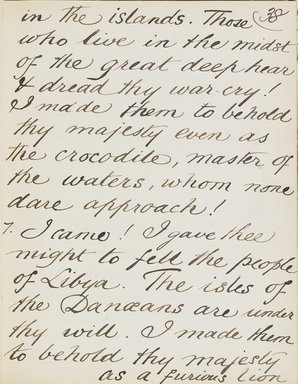 in the islands. Those 38
who live in the midst
of the great deep hear
& dread thy war-cry!
I made them to behold
thy majesty even as
the crocodile, master of
the waters, whom none
dare approach!
7. I came! I gave thee
might to fell the people
of Libya. The isles of
the Danæans are under
thy will. I made them
to behold thy majesty
as a furious lion